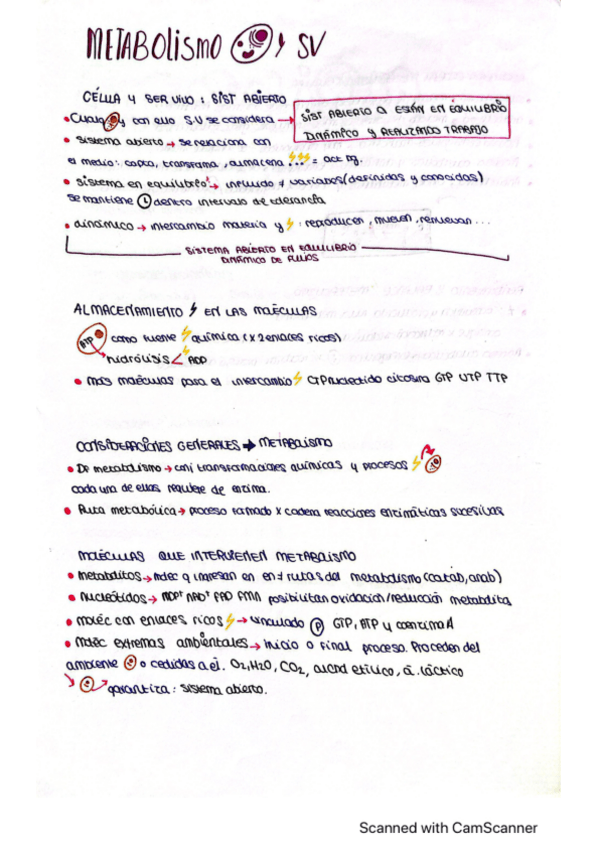 METABOLISMO Y SV
CÉLULA Y SER VIVO: SIST ABIERTO
• Cualq y con ello S.V se considera → SIST ABIERTO Q ESTÁN EN EQUILIBRIO
DINÁMICO Y REALIZANDO TRABAJO
• Sistema abierto → se relaciona con
el medio: capta, transforma, almacena ... = act
• Sistema en equilibrio → incluido ≠ variables (definidas y conocidas)
se mantiene dentro intervalo de tolerancia
• dinámico → intercambio materia y : reproducen, mueren, renuevan...
SISTEMA ABIERTO EN EQUILIBRIO
DINÁMICO DE FLUJOS
ALMACENAMIENTO EN LAS MOLÉCULAS
ATP como fuente química (x 2 enlaces ricos)
hidrólisis ADP
• Más moléculas para el intercambio CTP nucleótido citosina GTP UTP TTP
CONSIDERACIONES GENERALES → METABOLISMO
• metabolismo → conj transformaciones químicas y procesos
cada una de ellas requiere de enzima.
• Ruta metabólica → proceso formado x cadena reacciones enzimáticas sucesivas
MOLÉCULAS QUE INTERVIENEN METABOLISMO
• metabolitos → moléc q ingresan en ≠ rutas del metabolismo (catab, anab)
• nucleótidos → NAD⁺ FAD FMN posibilitan oxidación/reducción metabolitos
• moléc con enlaces ricos → vinculado P GTP, ATP y coenzima A
• Moléc extremas ambientales → inicio o final proceso. Proceden del
ambiente o cedidas a él. O₂, H₂O, CO₂, alcohol etílico, á. láctico
→ garantiza: sistema abierto.
Scanned with CamScanner